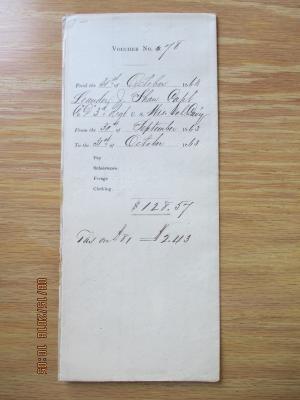 VOUCHER No. 278
Paid the 31st of October 1863
Leander J Shaw Capt
Co D 3d Regt C. Mis Vol Cavy
From the 30th of September 1863
To the 31st of October 1863
Pay
Subsistence
Forage
Clothing
$128.57
Tax on $81 = $2.43
08/15/2018 10:05